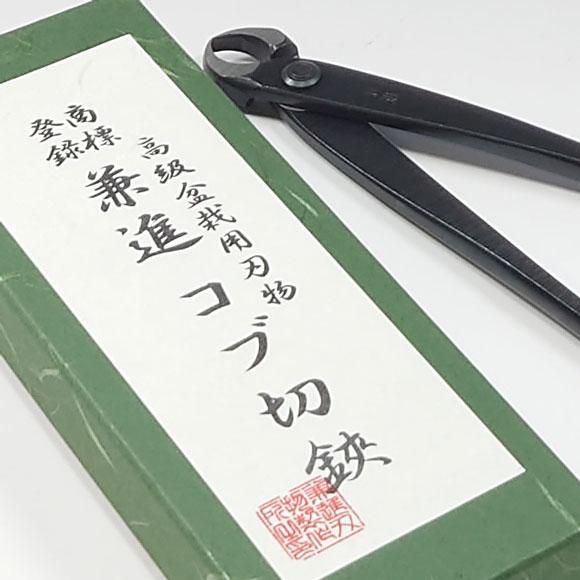 商標
登録
高級盆栽用刃物
兼進コブ切鋏